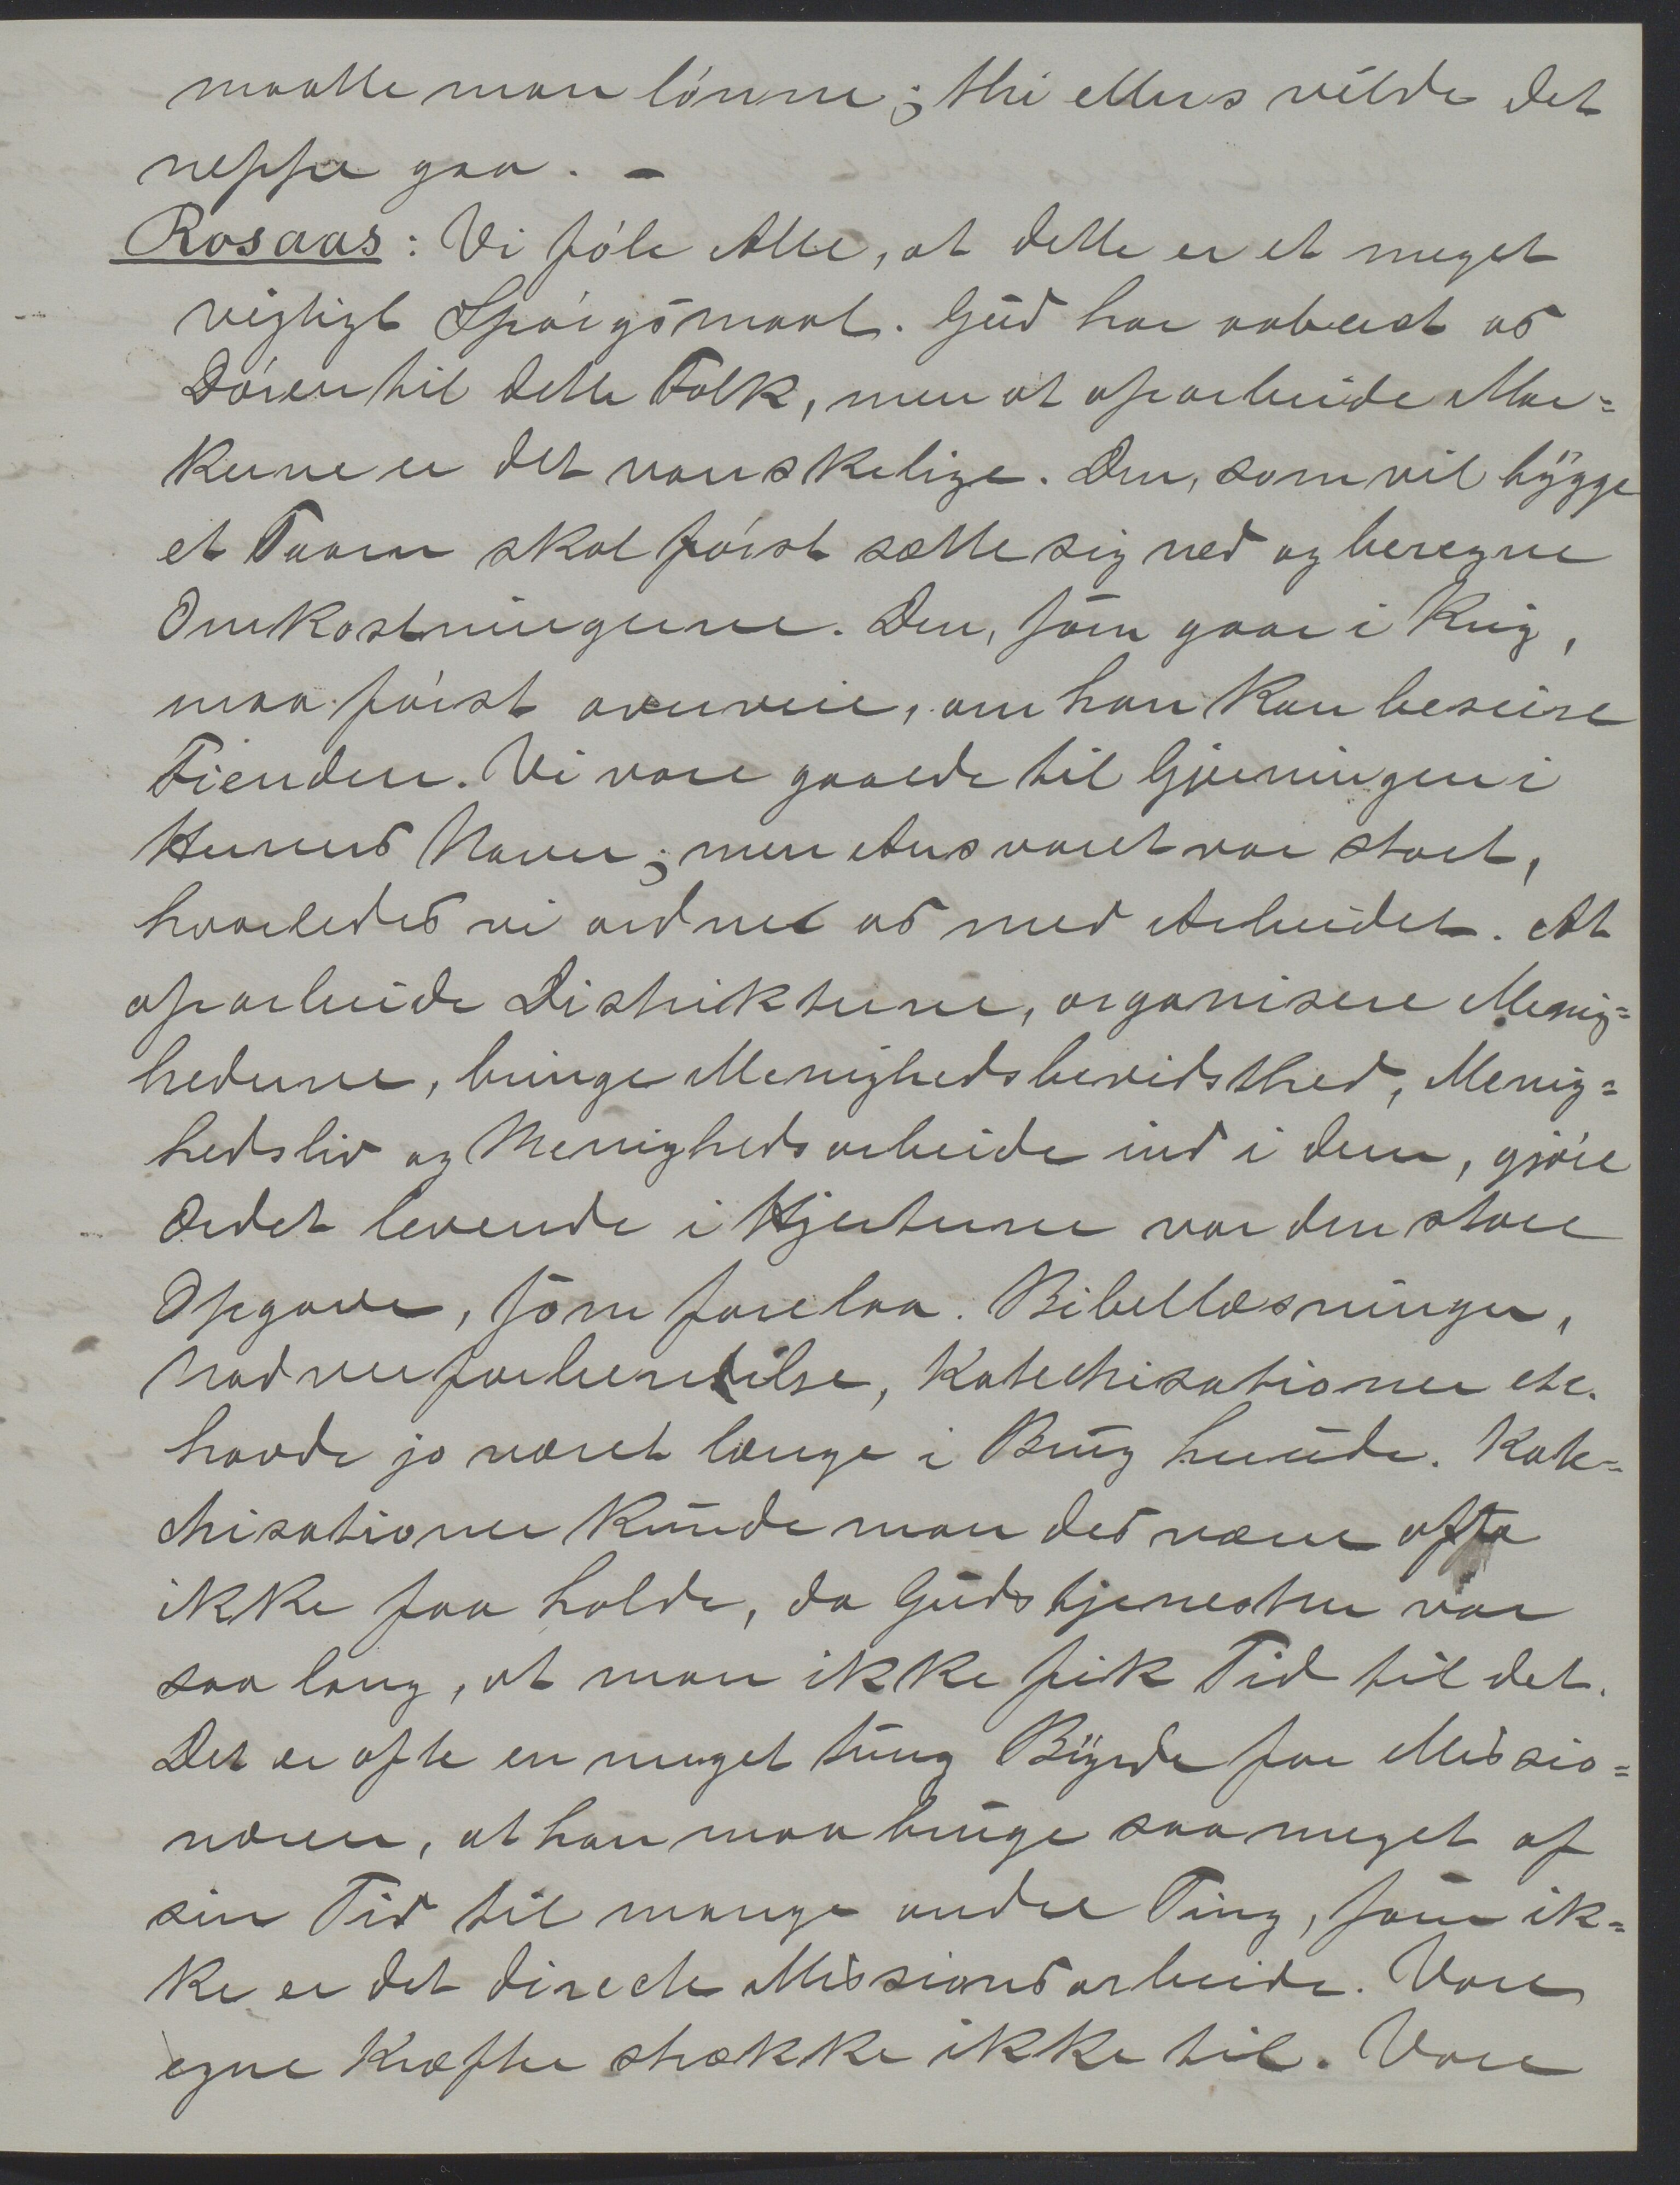 maatte man lönne; thi ellers vilde det
neppe gaa. –
Rosaas: Vi föle Alle, at dette er et meget
vigtigt Spörgsmaal. Gud har aabnet os
Dören til dette Folk, men at oparbeide Mar=
kerne er det vanskelige. Den, som vil bygge
et Taarn skal först sætte sig ned og beregne
Omkostningerne. Den, som gaar i Krig,
maa först overveie, om han kan beseire
Fienden. Vi vare gaaede til Gjerningen i
Herrens Navn; men Ansvaret var stort,
hvorledes vi ordne os med Arbeidet. At
oparbeide Distrikterne, organisere Menig=
hederne, bringe Menighedsbevidsthed, Menig=
hedsliv og Menighedsarbeide ind i dem, gjöre
Ordet levende i Hjerterne var den store
Opgave, som forelaa. Bibellæsninger,
Nadverforberedelse, Katechisationer etc.
havde jo været længe i Brug herude. Kate=
chisationer kunde man desværre ofte
ikke faa holde, da Gudstjenesten var
saa lang, at man ikke fik Tid til det.
Det er ofte en meget tung Byrde for Missio=
næren, at han maa bruge saa meget af
sin Tid til mange andre Ting, som ik=
ke er det directe Missionsarbeide. Vore
egne Kræfter strække ikke til. Vore